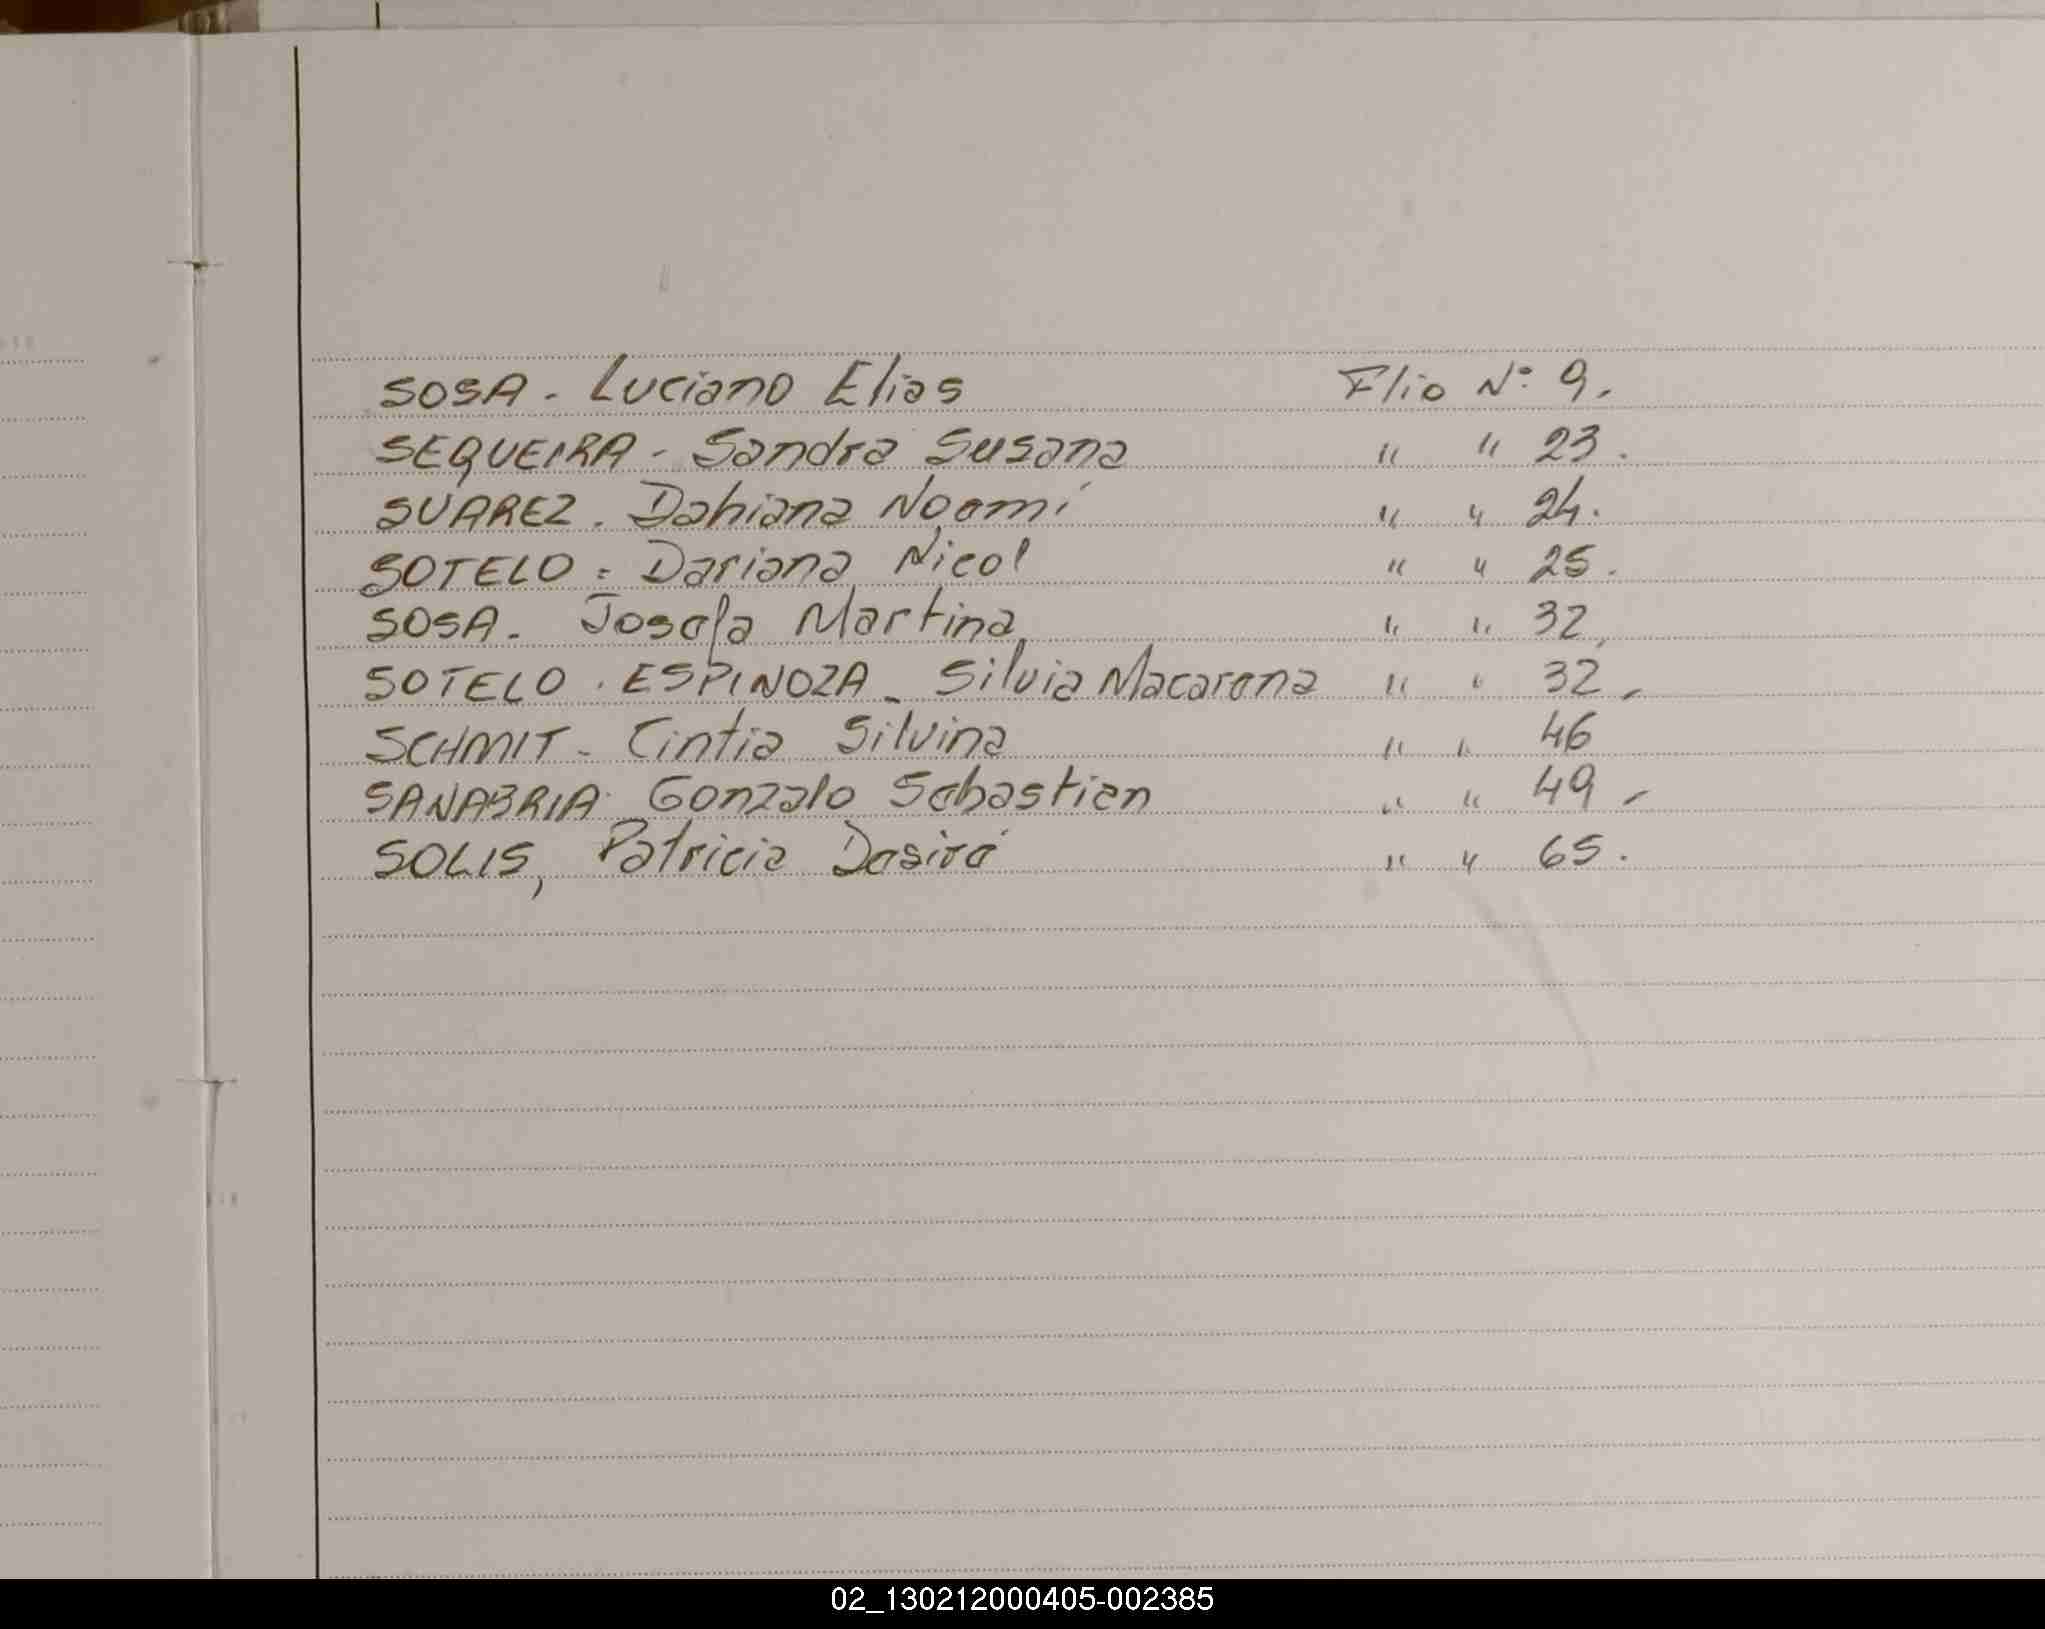 SOSA - Luciano Elias Flio Nº 9.
SEQUEIRA - Sandra Susana " " 23.
SUAREZ. Dahiana Noemí " " 24.
SOTELO = Dariana Nicol " " 25.
SOSA - Josefa Martina " " 32,
SOTELO . ESPINOZA - Silvia Macarena " " 32 -
SCHMIT - Cintia Silvina " " 46
SANABRIA Gonzalo Sebastien " " 49 -
SOLIS, Patricia Desiré " " 65.
02_130212000405-002385